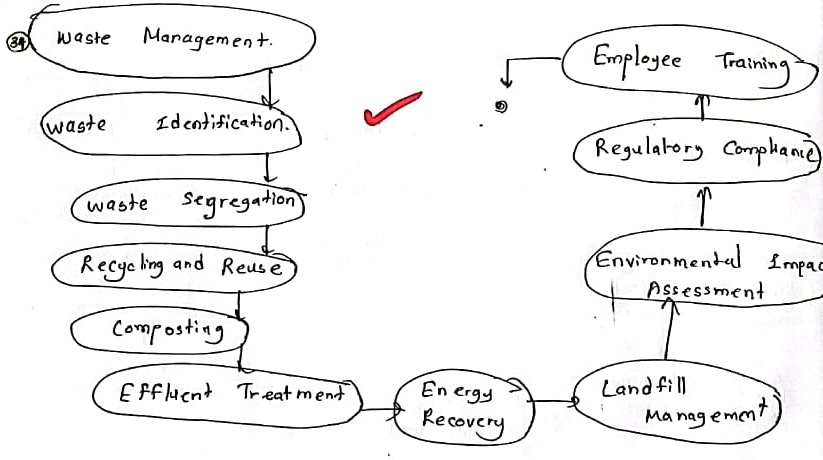 34
Waste Management.
Waste Identification.
Waste Segregation
Recycling and Reuse
Composting
Effluent Treatment
Energy
Recovery
Landfill
Management
Environmental Impac
Assessment
Regulatory Compliance
Employee Training